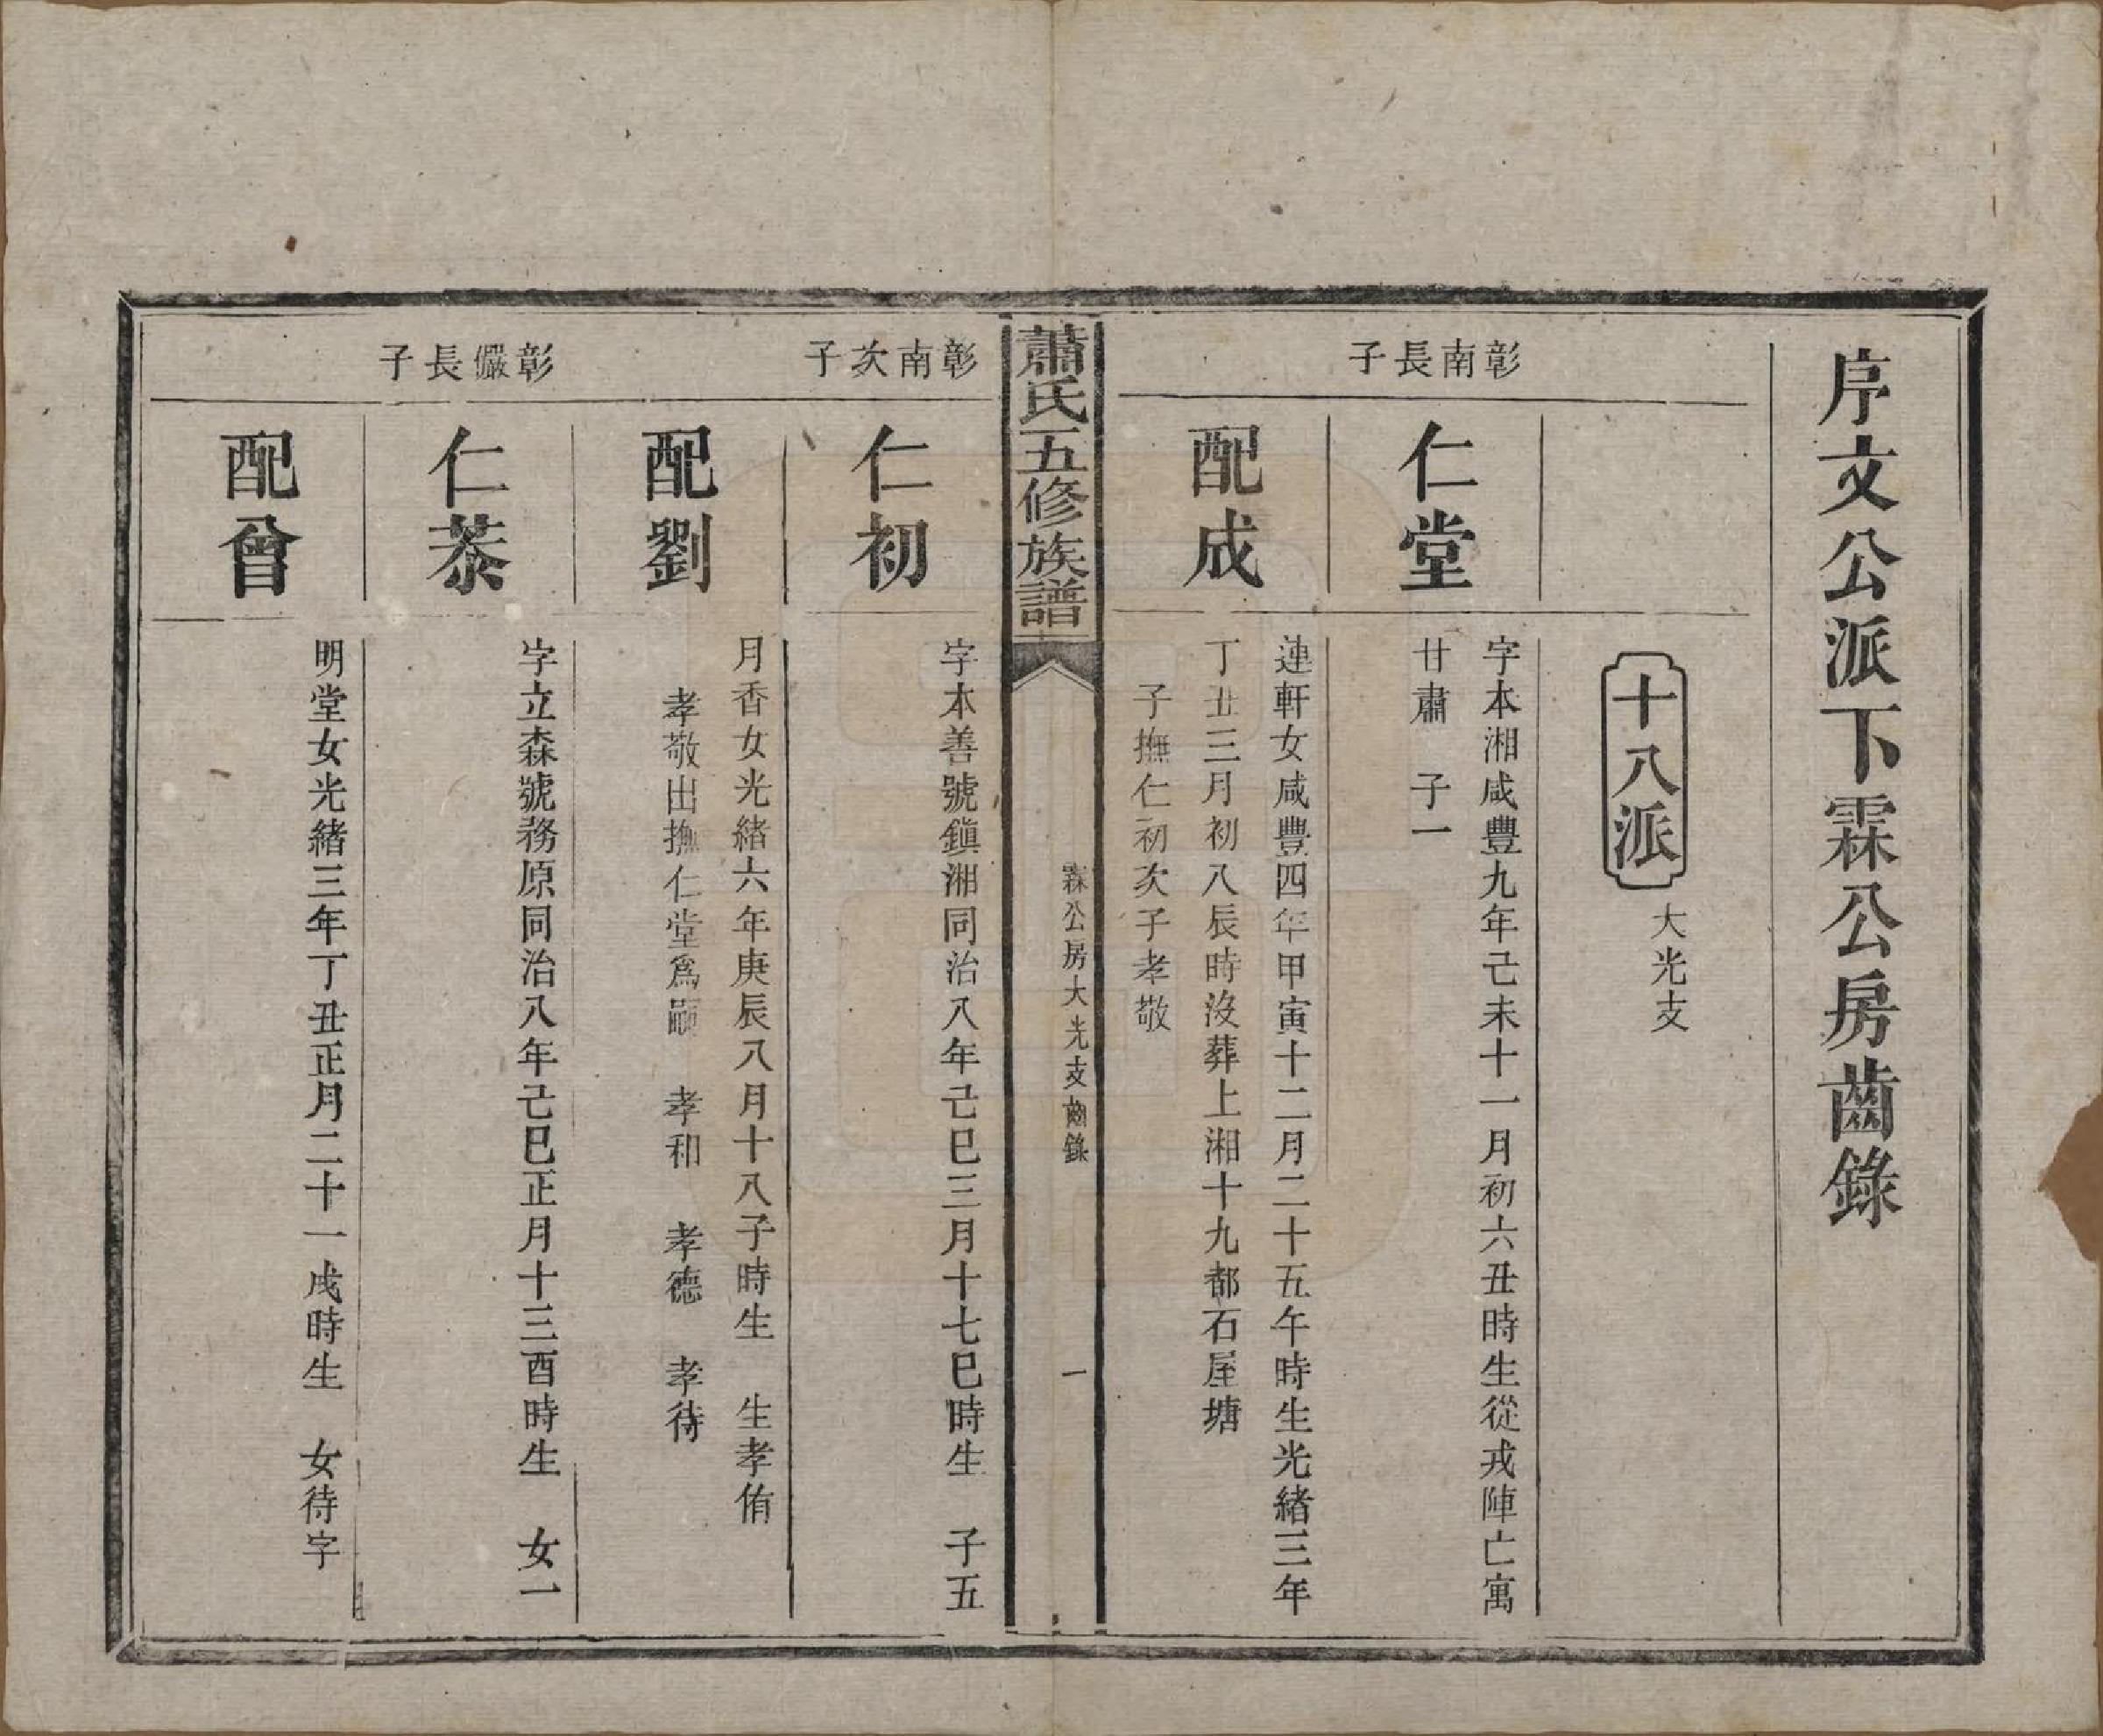 序文公派下霖公房齒錄
十八派
大光支
彰南長子
仁堂
字本湘咸豐九年己未十一月初六丑時生從戎陣亡寓
甘肅 子一
配成
連軒女咸豐四年甲寅十二月二十五午時生光緒三年
丁丑三月初八辰時沒葬上湘十九都石屋塘
子撫仁初次子孝敬
蕭氏五修族譜
霖公房大光支齒錄
一
彰南次子
仁初
字本善號鎮湘同治八年己巳三月十七巳時生 子五
配劉
月香女光緒六年庚辰八月十八子時生 生孝侑
孝敬出撫仁堂為嗣 孝和 孝德 孝待
彰儼長子
仁恭
字立森號務原同治八年己巳正月十三酉時生 女一
配曾
明堂女光緒三年丁丑正月二十一戌時生 女待字